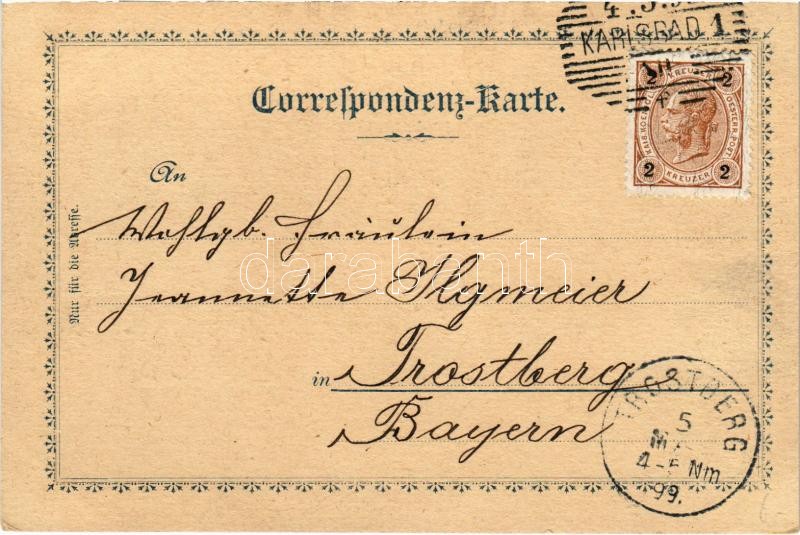 4.5.9
KARLSBAD 1
Correspondenz-Karte.
2 KREUZER 2
KAIS. KOENIGL. OESTERR. POST
2 KREUZER 2
An
Nur für die Adresse.
Wohlgb. Fräulein
Jeannette Ilgmeier
in Trostberg
Bayern
TROSTBERG
5
MA
4-5 Nm
99.
darabanth